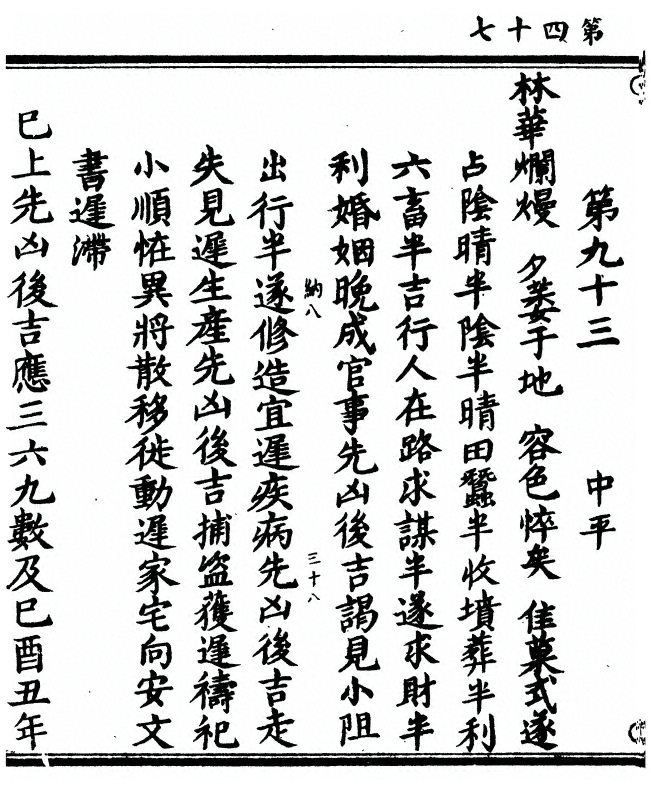 第四十七
第九十三 中平
林華爛熳 夕萎于地 容色悴矣 佳菓式遂
占陰晴半陰半晴田蠶半收墳葬半利
六畜半吉行人在路求謀半遂求財半
利婚姻晚成官事先凶後吉謁見小阻
納八
三十八
出行半遂修造宜遲疾病先凶後吉走
失見遲生產先凶後吉捕盜獲遲禱祀
小順恠異將散移徙動遲家宅向安文
書遲滯
巳上先凶後吉應三六九數及巳酉丑年